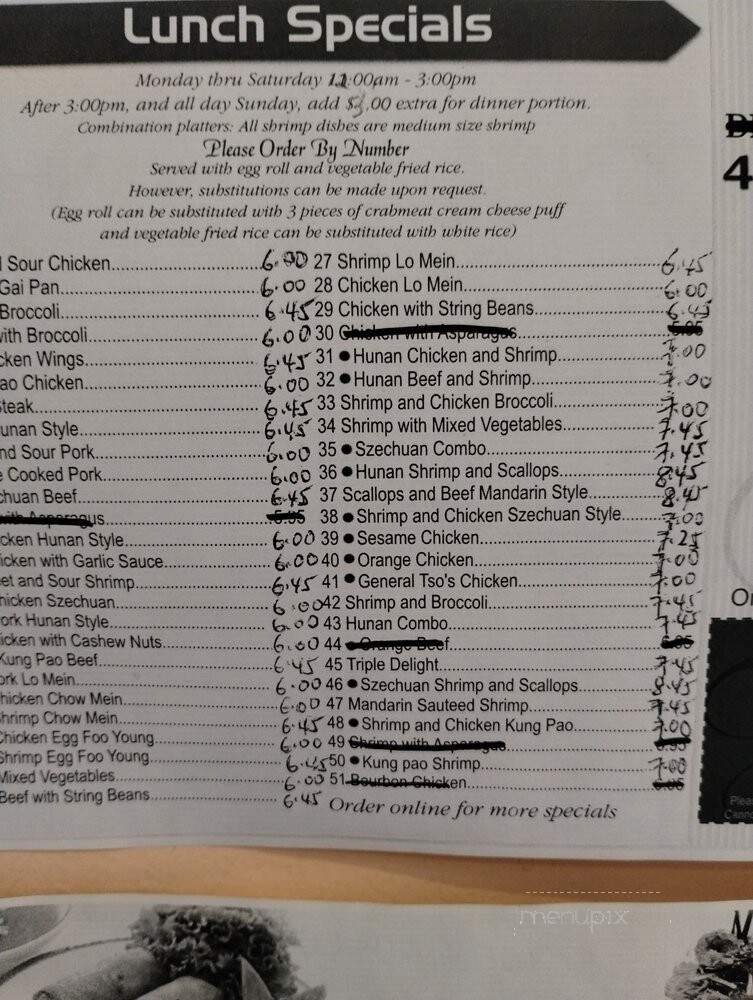 Lunch Specials
Monday thru Saturday 11:00am - 3:00pm
After 3:00pm, and all day Sunday, add $3.00 extra for dinner portion.
Combination platters: All shrimp dishes are medium size shrimp
Please Order By Number
Served with egg roll and vegetable fried rice.
However, substitutions can be made upon request.
(Egg roll can be substituted with 3 pieces of crabmeat cream cheese puff
and vegetable fried rice can be substituted with white rice)
Sour Chicken 6.00
Gai Pan 6.00
Broccoli 6.45
with Broccoli 6.00
cken Wings 6.45
ao Chicken 6.00
Steak 6.45
unan Style 6.45
nd Sour Pork 6.00
e Cooked Pork 6.00
chuan Beef 6.45
with Asparagus 5.95
cken Hunan Style 6.00
icken with Garlic Sauce 6.00
eet and Sour Shrimp 6.45
hicken Szechuan 6.00
ork Hunan Style 6.00
icken with Cashew Nuts 6.00
Kung Pao Beef 6.45
ork Lo Mein 6.00
hicken Chow Mein 6.00
Shrimp Chow Mein 6.45
Chicken Egg Foo Young 6.00
Shrimp Egg Foo Young 6.45
Mixed Vegetables 6.00
Beef with String Beans 6.45
27 Shrimp Lo Mein 6.45
28 Chicken Lo Mein 6.00
29 Chicken with String Beans 6.45
30 Chicken with Asparagus 5.95
31 ● Hunan Chicken and Shrimp 7.00
32 ● Hunan Beef and Shrimp 7.00
33 Shrimp and Chicken Broccoli 7.00
34 Shrimp with Mixed Vegetables 7.45
35 ● Szechuan Combo 7.45
36 ● Hunan Shrimp and Scallops 8.45
37 Scallops and Beef Mandarin Style 8.45
38 ● Shrimp and Chicken Szechuan Style 7.00
39 ● Sesame Chicken 7.25
40 ● Orange Chicken 7.00
41 ● General Tso's Chicken 7.00
42 Shrimp and Broccoli 7.45
43 Hunan Combo 7.45
44 ● Orange Beef
45 Triple Delight 7.45
46 ● Szechuan Shrimp and Scallops 8.45
47 Mandarin Sauteed Shrimp 7.45
48 ● Shrimp and Chicken Kung Pao 7.00
49 Shrimp with Asparagus
50 ● Kung pao Shrimp 7.00
51 Bourbon Chicken
Order online for more specials
4
Or
Pleas
Canno
menupix
M